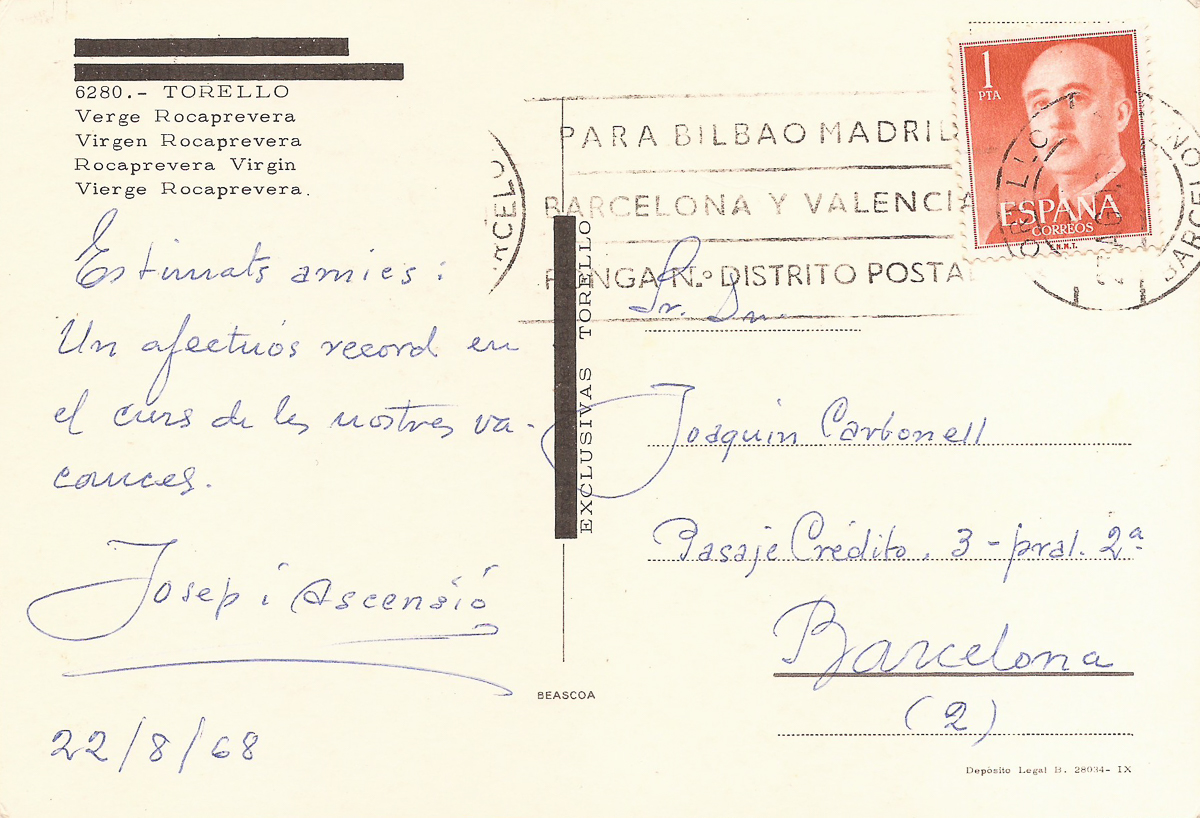 6280.- TORELLO
Verge Rocaprevera
Virgen Rocaprevera
Rocaprevera Virgin
Vierge Rocaprevera.
Estimats amics:
Un afectuós record en
el curs de les nostres va-
cances.
Josep i Ascensió
22/8/68
EXCLUSIVAS TORELLO
BEASCOA
PARA BILBAO MADRID
BARCELONA Y VALENCIA
PONGA N.º DISTRITO POSTAL
1
PTA
ESPAÑA
CORREOS
F.N.M.T.
Sr. Dn.
Joaquin Carbonell
Pasaje Crédito, 3 - pral. 2ª
Barcelona
(2)
Depósito Legal B. 28034- IX